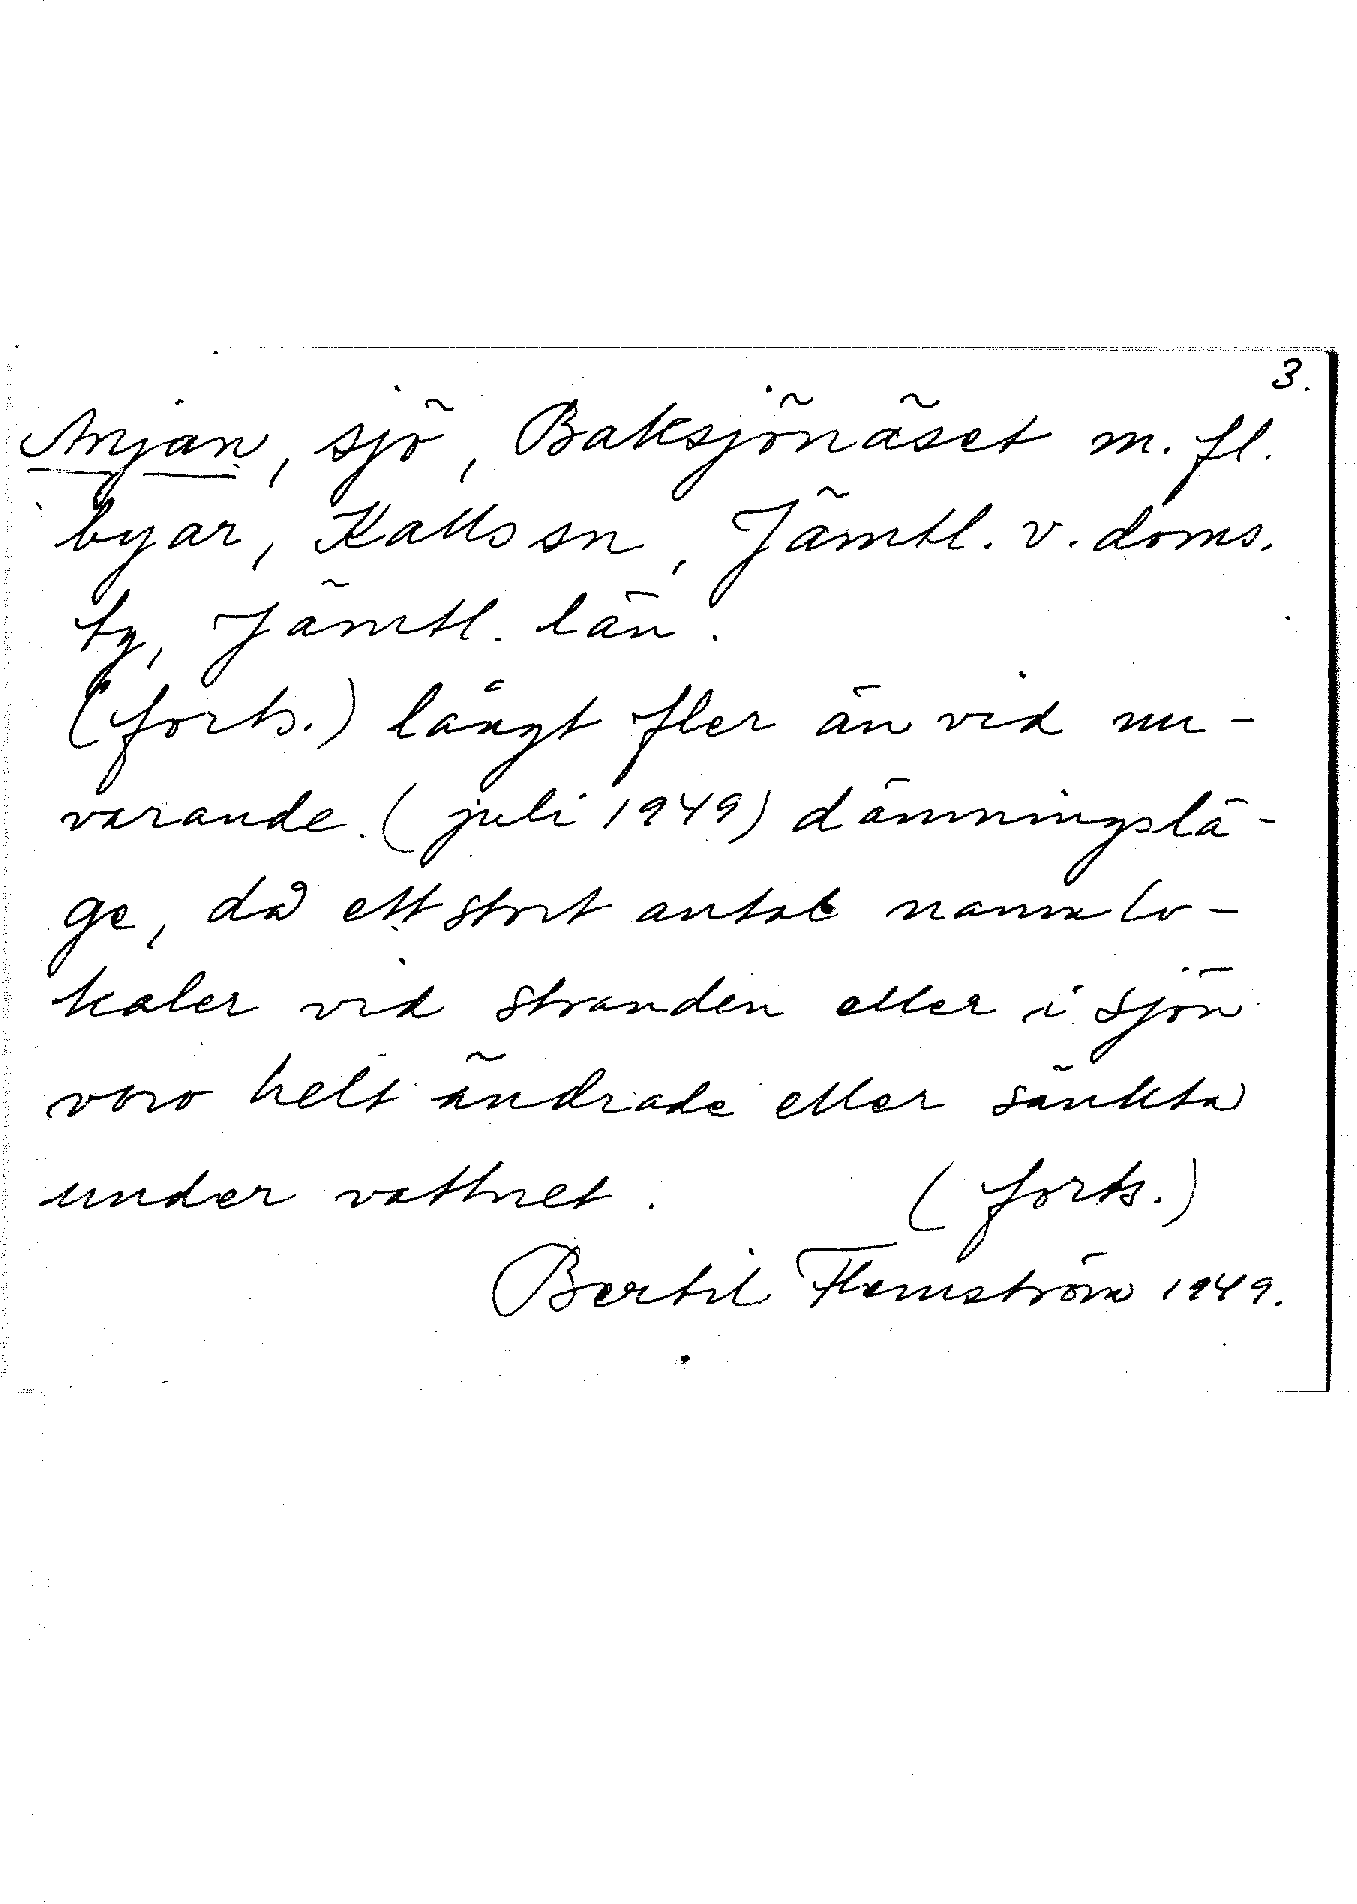 3.
Anjan, sjö, Baksjönäset m. fl.
byar, Kalls sn, Jämtl. v. doms.
tg, Jämtl. län.
(forts.) långt fler än vid nu-
varande (juli 1949) dämningslä-
ge, då ett stort antal namnlo-
kaler vid stranden eller i sjön
voro helt ändrade eller sänkta
under vattnet. (forts.)
Bertil Flemström 1949.